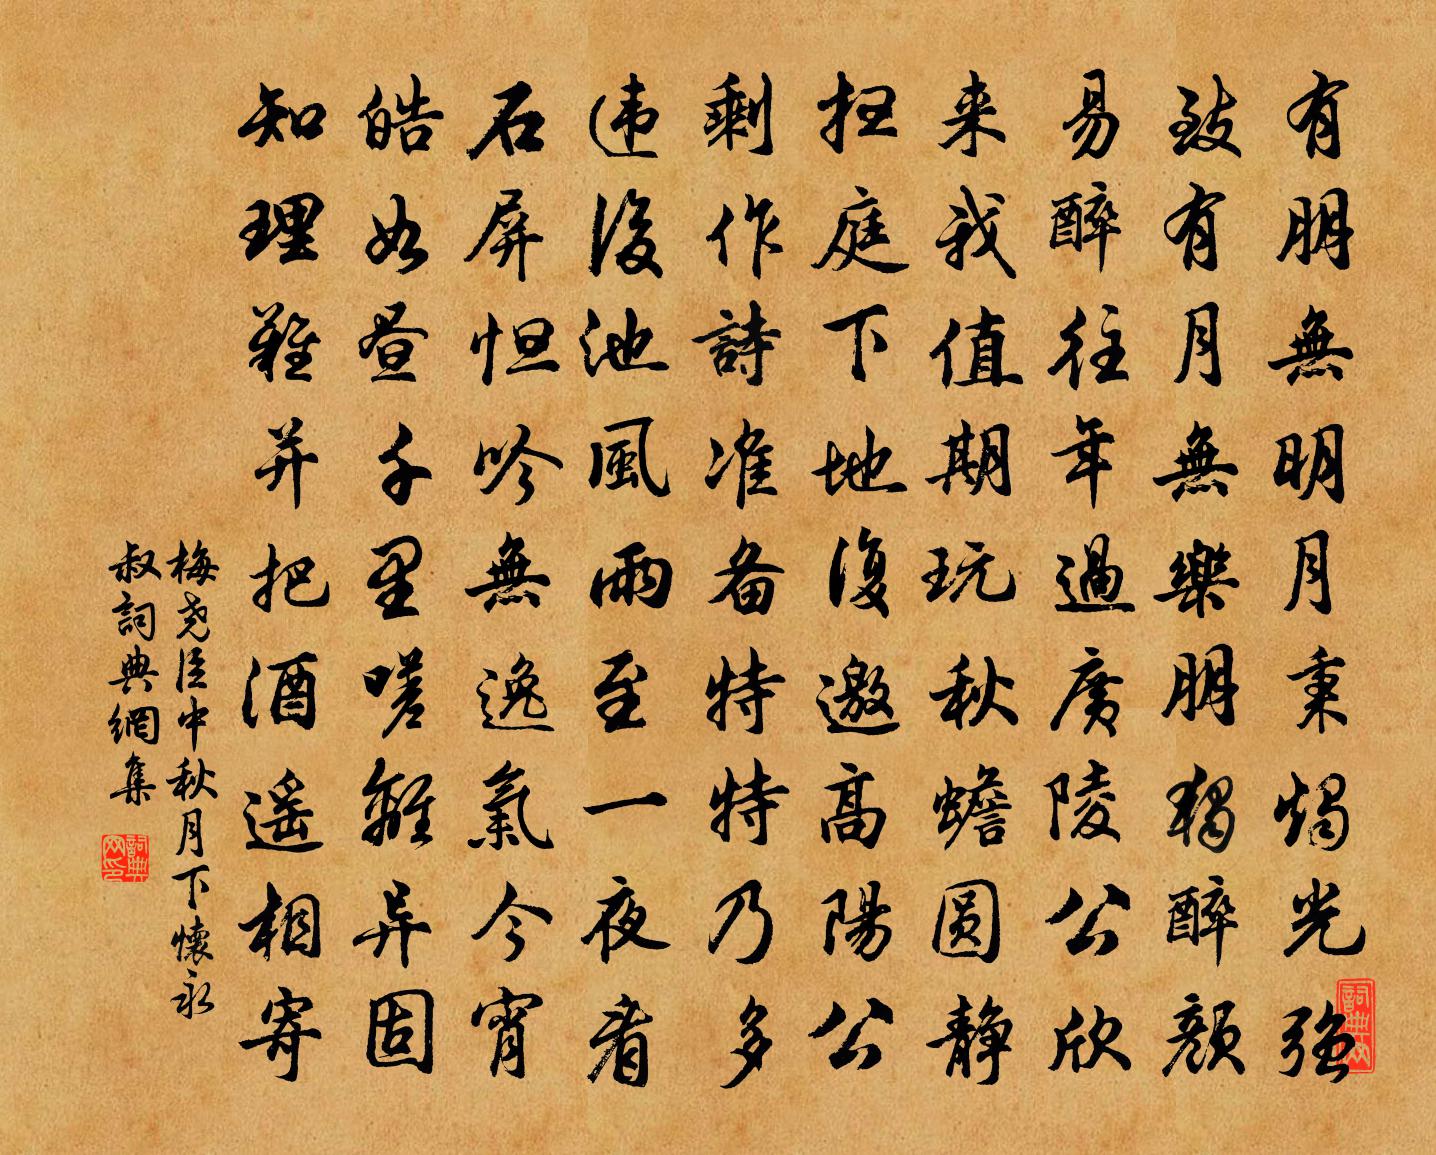 有朋無明月秉燭光強
致有月無樂朋獨醉顏
易醉往年過廣陵公欣
来我值期玩秋蟾圆静
扫庭下地復邀高陽公
剩作詩准备特特乃多
违後池風雨至一夜看
石屏怛吟無逸氣今宵
皓如昼千里嗟離异固
知理難并把酒遥相寄
梅尧臣中秋月下懷永
叔詞典網集
詞典网印
詞典网